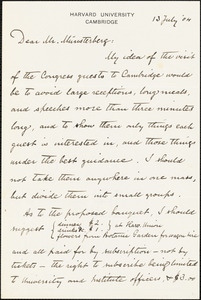 HARVARD UNIVERSITY
CAMBRIDGE
13 July '04
Dear Mr. Münsterberg:
My idea of the visit
of the Congress guests to Cambridge would
be to avoid large receptions, long meals,
and speeches more than three minutes
long, and to show them only things each
guest is interested in, and those things
under the best guidance. I should
not take them anywhere in one mass,
but divide them into small groups.
As to the proposed banquet, I should
suggest
flowers from Botanic Garden
and all paid for by subscription - not by
tickets - the right to subscribe being limited
to University and Institute officers, & $3.